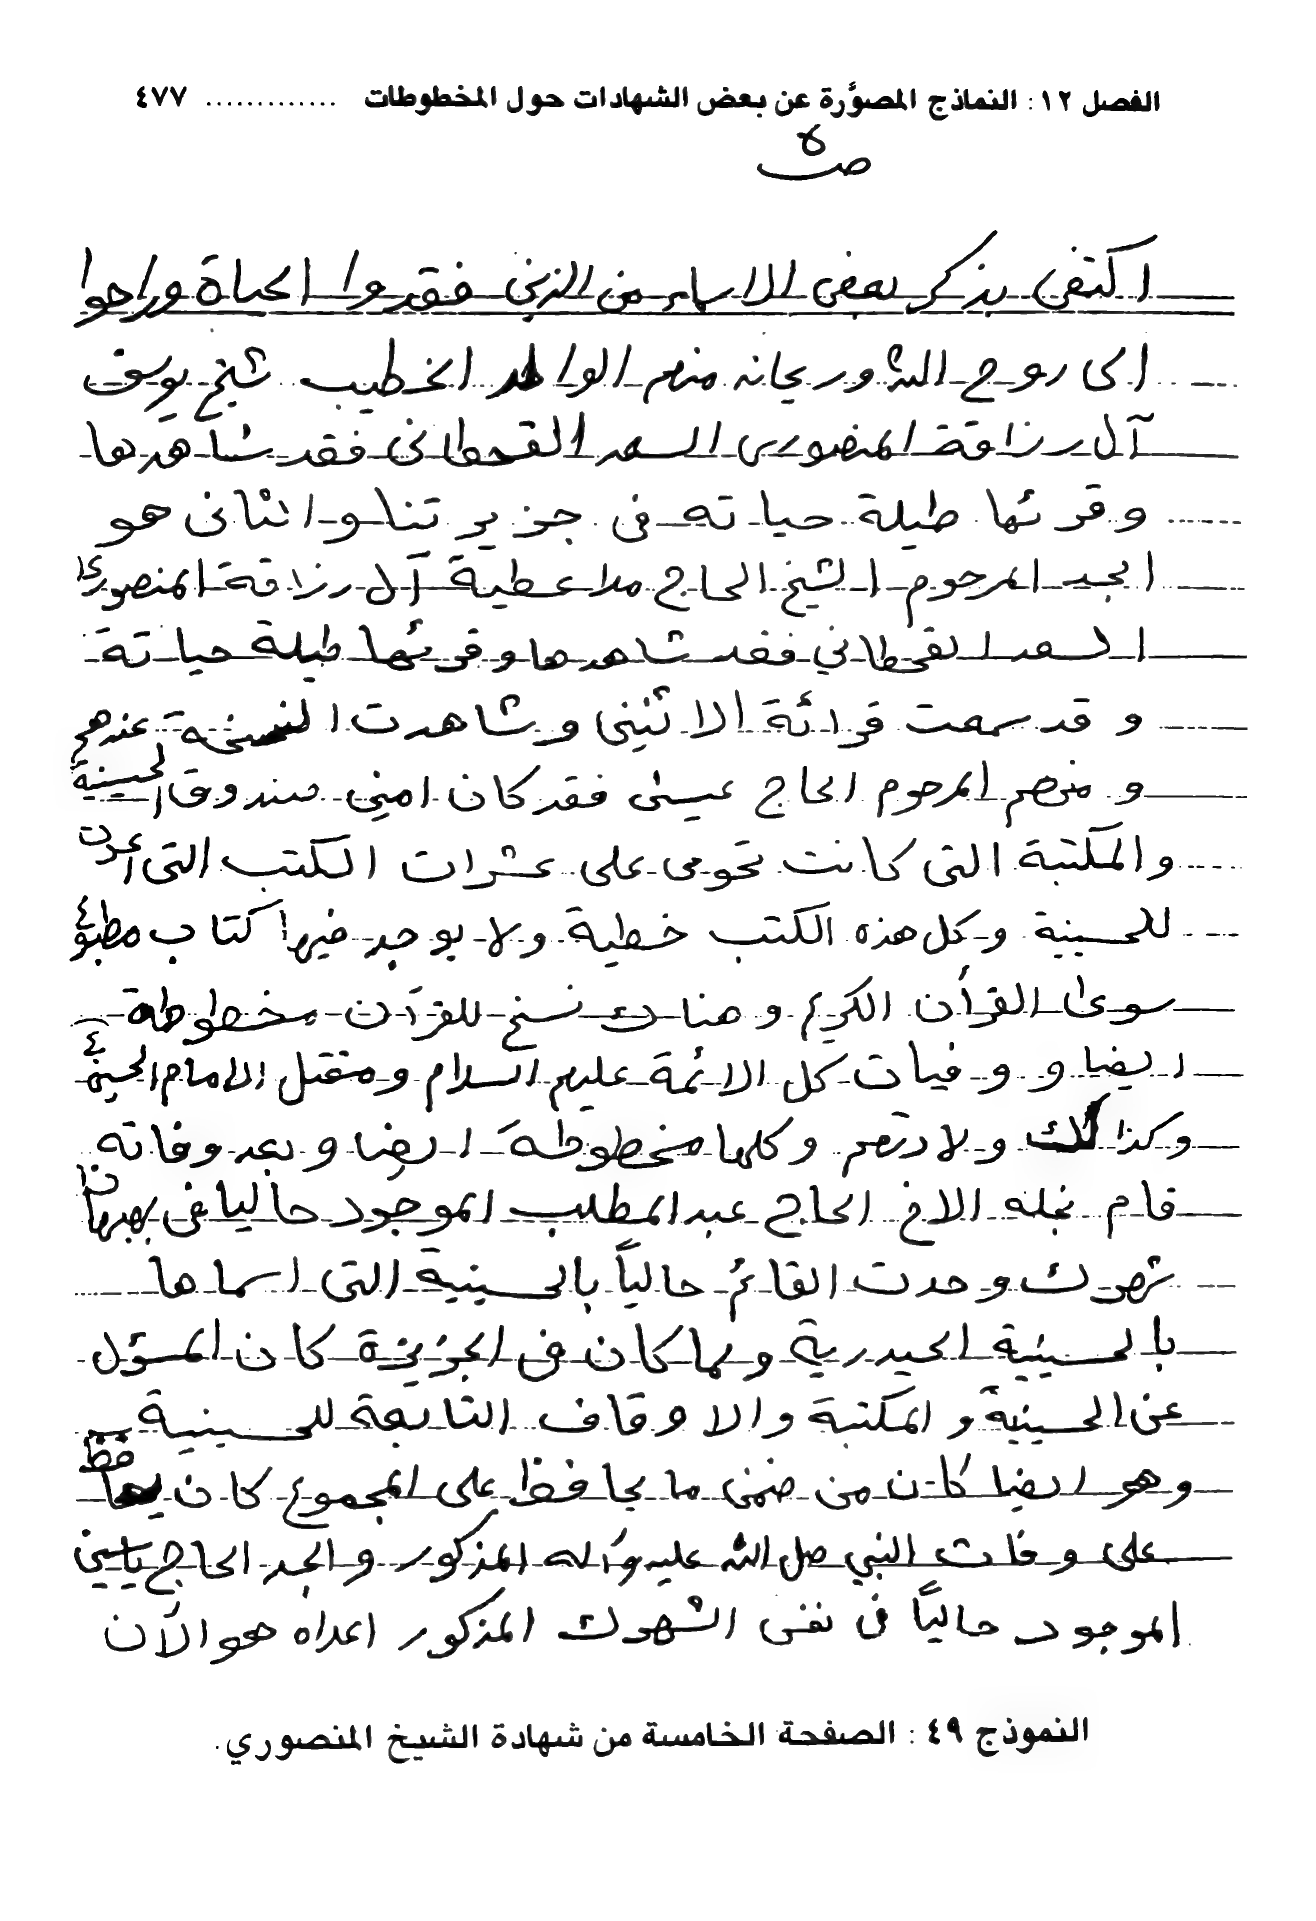 الفصل ١٢: النماذج المصوَّرة عن بعض الشهادات حول المخطوطات ............. ٤٧٧
ص ٥
اكتفي بذكر بعض الاسماء من الذين فقدوا الحياة وراحوا
الى روح الله وريحانه منهم الوالد الخطيب شيخ يوسف
آل رزاقة المنصوري السعد القحطاني فقد شاهدها
وقرئها طيلة حياته في جزير تنا والثاني هو
الجد المرحوم الشيخ الحاج ملا عطية آل رزاقة المنصوري
السعد القحطاني فقد شاهدها وقرئها طيلة حياتة
وقد سمعت قرائة الاثنين وشاهدت النسخة عندهم
ومنهم المرحوم الحاج عيسى فقد كان امين صندوق الحسينية
والمكتبة التي كانت تحوى على عشرات الكتب التي
للحسينية وكل هذه الكتب خطية ولا يوجد فيها كتاب مطبوع
سوى القرأن الكريم وهناك نسخ للقرآن مخطوطة
ايضا و وفيات كل الائمة عليهم السلام ومقتل الامام الحسين ع
وكذالك ولادتهم وكلها مخطوطة ايضا وبعد وفاته
قام نجله الاخ الحاج عبد المطلب الموجود حاليا في بهبهان
شهرك وحدت القائم حالياً بالحسينية التي اسماها
بالحسينية الحيدرية ولما كان في الجزيرة كان المسؤل
عن الحسينية والمكتبة والاوقاف التابعة للحسينية
وهو ايضا كان من ضمن ما يحافظ على المجموع كان يحافظ
على وفات النبي صل الله عليه وآله المذكور والجد الحاج ياسين
الموجود حالياً في نفس الشهرك المذكور اعداه هو الآن
النموذج ٤٩: الصفحة الخامسة من شهادة الشيخ المنصوري.